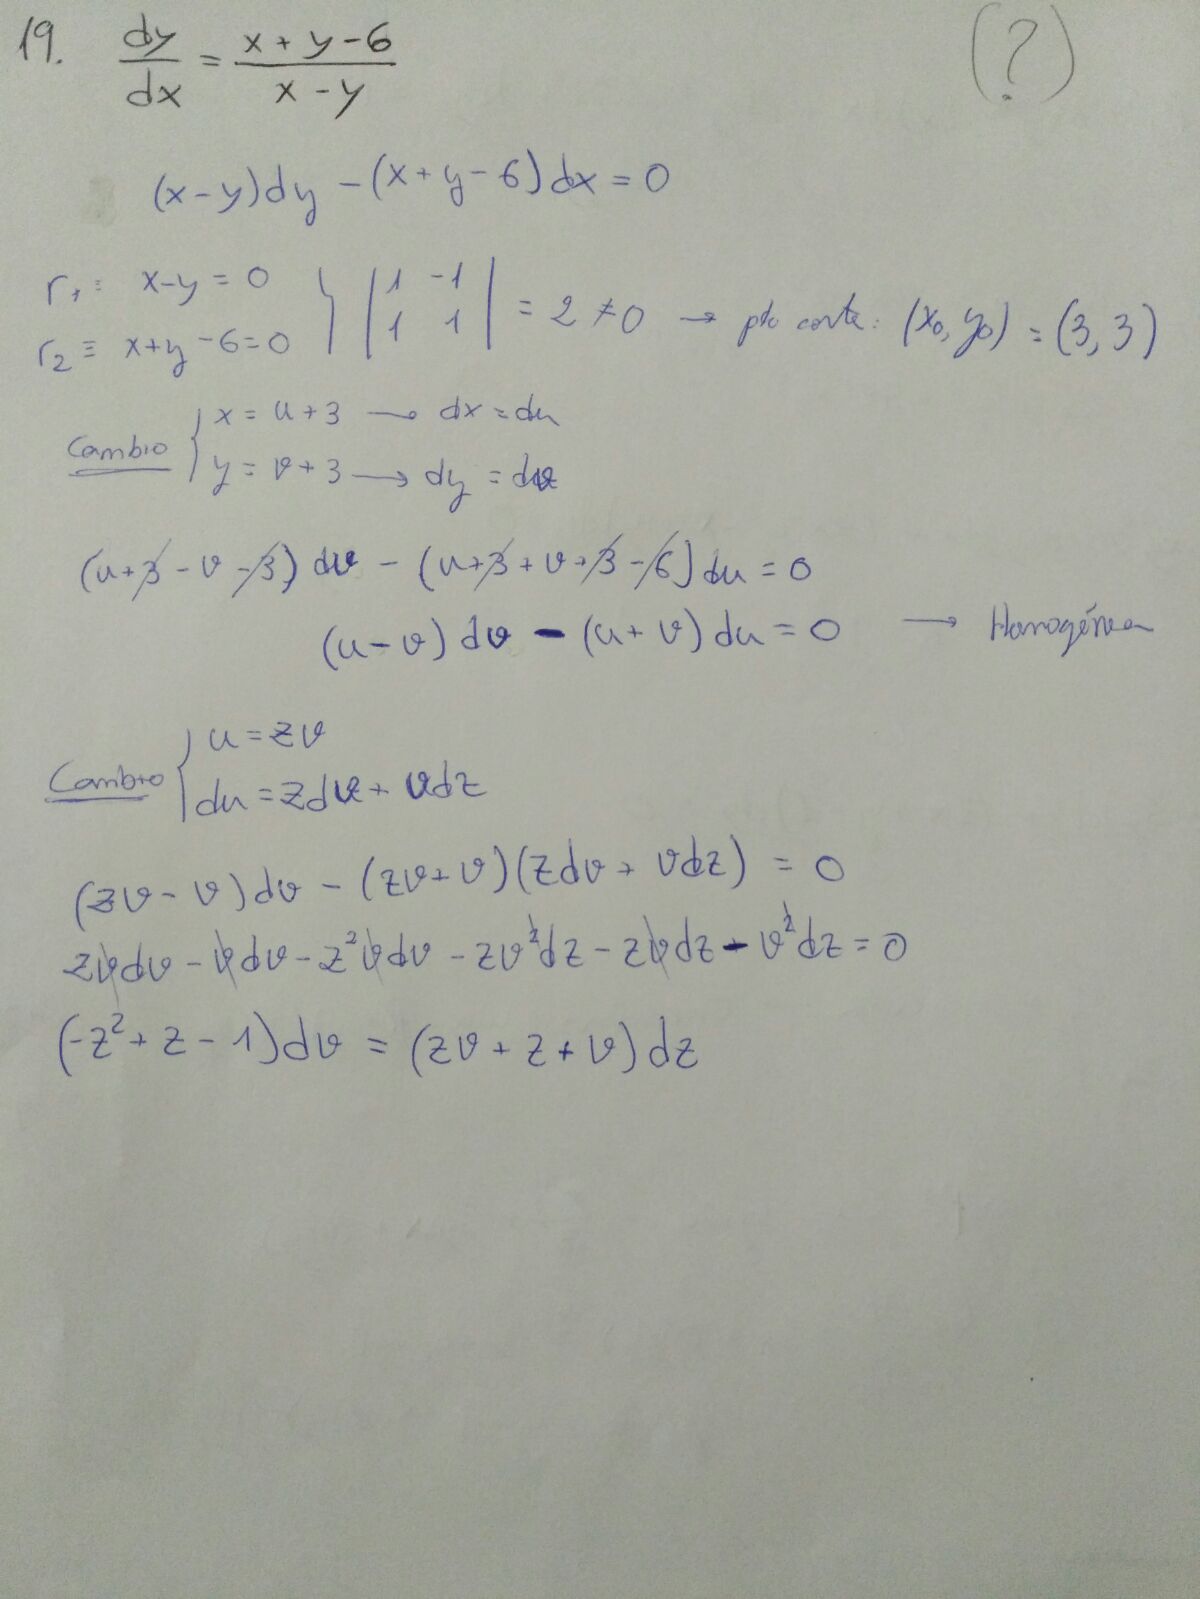 19. dy/dx = (x + y - 6)/(x - y) (?)
(x - y)dy - (x + y - 6)dx = 0
r₁ ≡ x - y = 0
r₂ ≡ x + y - 6 = 0 } |1 -1; 1 1| = 2 ≠ 0 → pto corte: (x₀, y₀) = (3, 3)
Cambio { x = u + 3 → dx = du
y = v + 3 → dy = dv
(u + 3 - v - 3) dv - (u + 3 + v + 3 - 6) du = 0
(u - v) dv - (u + v) du = 0 → Homogénea
Cambio { u = zv
du = zdv + vdz
(zv - v)dv - (zv + v)(zdv + vdz) = 0
zvdv - vdv - z²vdv - zv²dz - zvdz - v²dz = 0
(-z² + z - 1)dv = (zv + z + v)dz